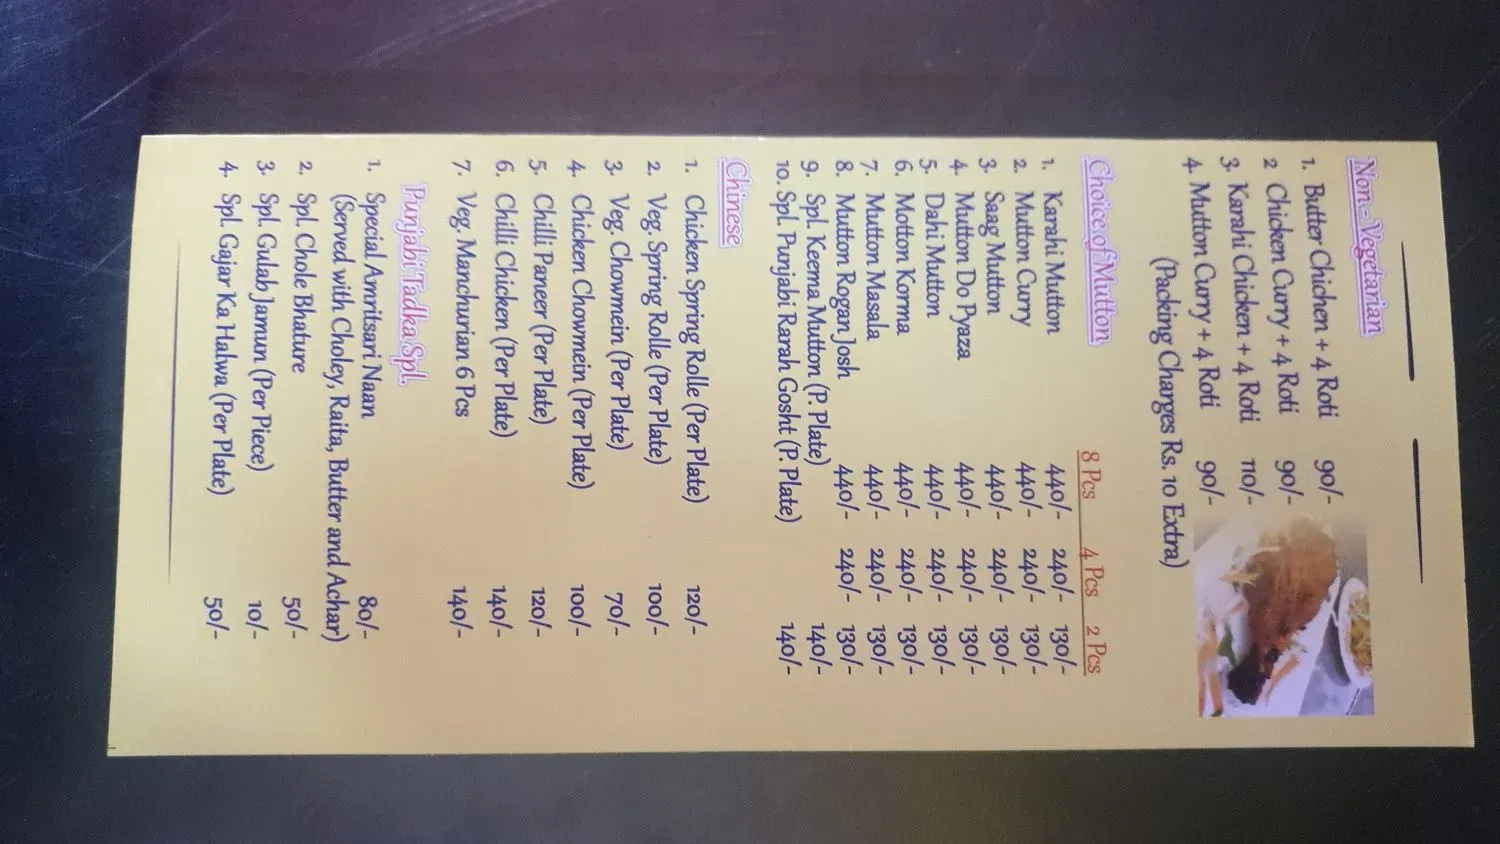 Non-Vegetarian
1. Butter Chichen + 4 Roti 90/-
2 Chicken Curry + 4 Roti 90/-
3. Karahi Chicken + 4 Roti 110/-
4. Mutton Curry + 4 Roti 90/-
(Packing Charges Rs. 10 Extra)
Choice of Mutton 8 Pcs 4 Pcs 2 Pcs
1. Karahi Mutton 440/- 240/- 130/-
2. Mutton Curry 440/- 240/- 130/-
3. Saag Mutton 440/- 240/- 130/-
4. Mutton Do Pyaza 440/- 240/- 130/-
5. Dahi Mutton 440/- 240/- 130/-
6. Motton Korma 440/- 240/- 130/-
7. Mutton Masala 440/- 240/- 130/-
8. Mutton Rogan Josh 440/- 240/- 130/-
9. Spl. Keema Mutton (P. Plate) 140/-
10. Spl. Punjabi Rarah Gosht (P. Plate) 140/-
Chinese
1. Chicken Spring Rolle (Per Plate) 120/-
2. Veg. Spring Rolle (Per Plate) 100/-
3. Veg. Chowmein (Per Plate) 70/-
4. Chicken Chowmein (Per Plate) 100/-
5. Chilli Paneer (Per Plate) 120/-
6. Chilli Chicken (Per Plate) 140/-
7. Veg. Manchurian 6 Pcs 140/-
Punjabi Tadka Spl.
1. Special Amritsari Naan 80/-
(Served with Choley, Raita, Butter and Achar)
2. Spl. Chole Bhature 50/-
3. Spl. Gulab Jamun (Per Piece) 10/-
4. Spl. Gajar Ka Halwa (Per Plate) 50/-